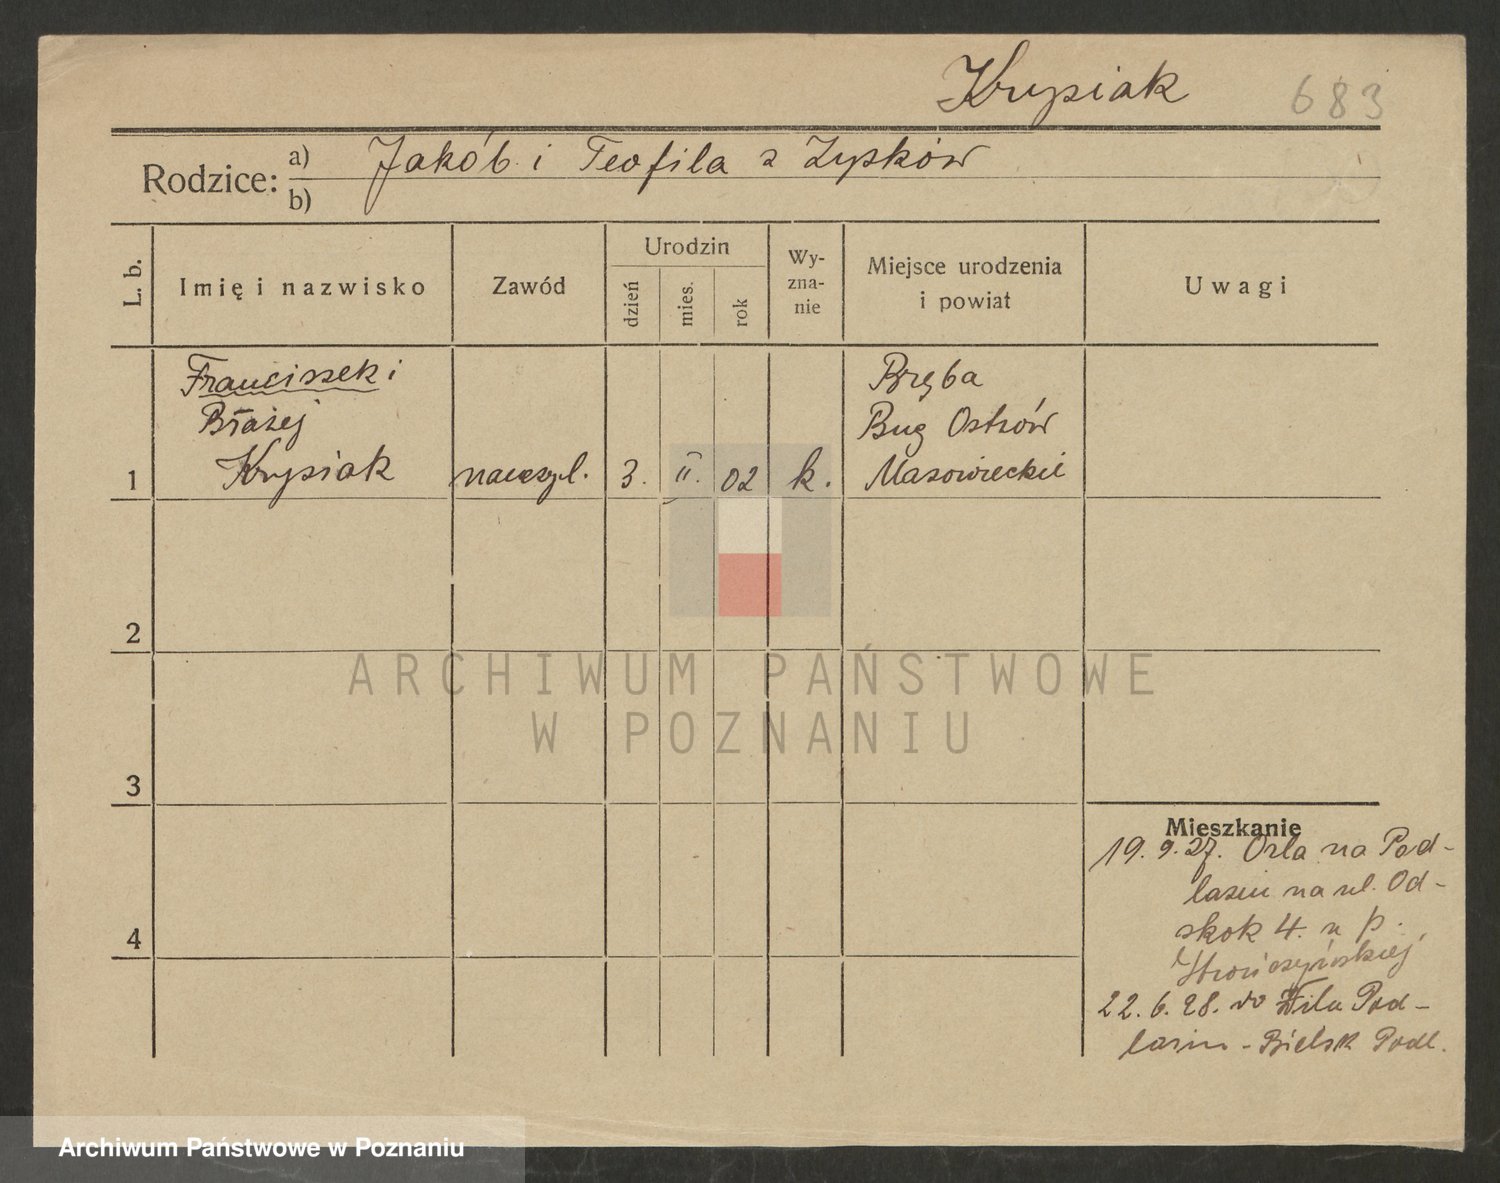 Krysiak 683
Rodzice: a) Jakób i Teofila z Zysków
b)
L. b.
Imię i nazwisko
Zawód
Urodzin
dzień
mies.
rok
Wy-
zna-
nie
Miejsce urodzenia
i powiat
Uwagi
Franciszek i
Błażej
1 Krysiak nauczyl. 3. II. 02 k.
Bręba
Bug Ostrów
Mazowieckie
2
3
4
Mieszkanie
19. 9. 27. Orla na Pod-
lasiu na ul. Od-
skok 4. u p.
22. 6. 28. do Pod-
lasiu - Bielsk Podl.
ARCHIWUM PAŃSTWOWE
W POZNANIU
Archiwum Państwowe w Poznaniu